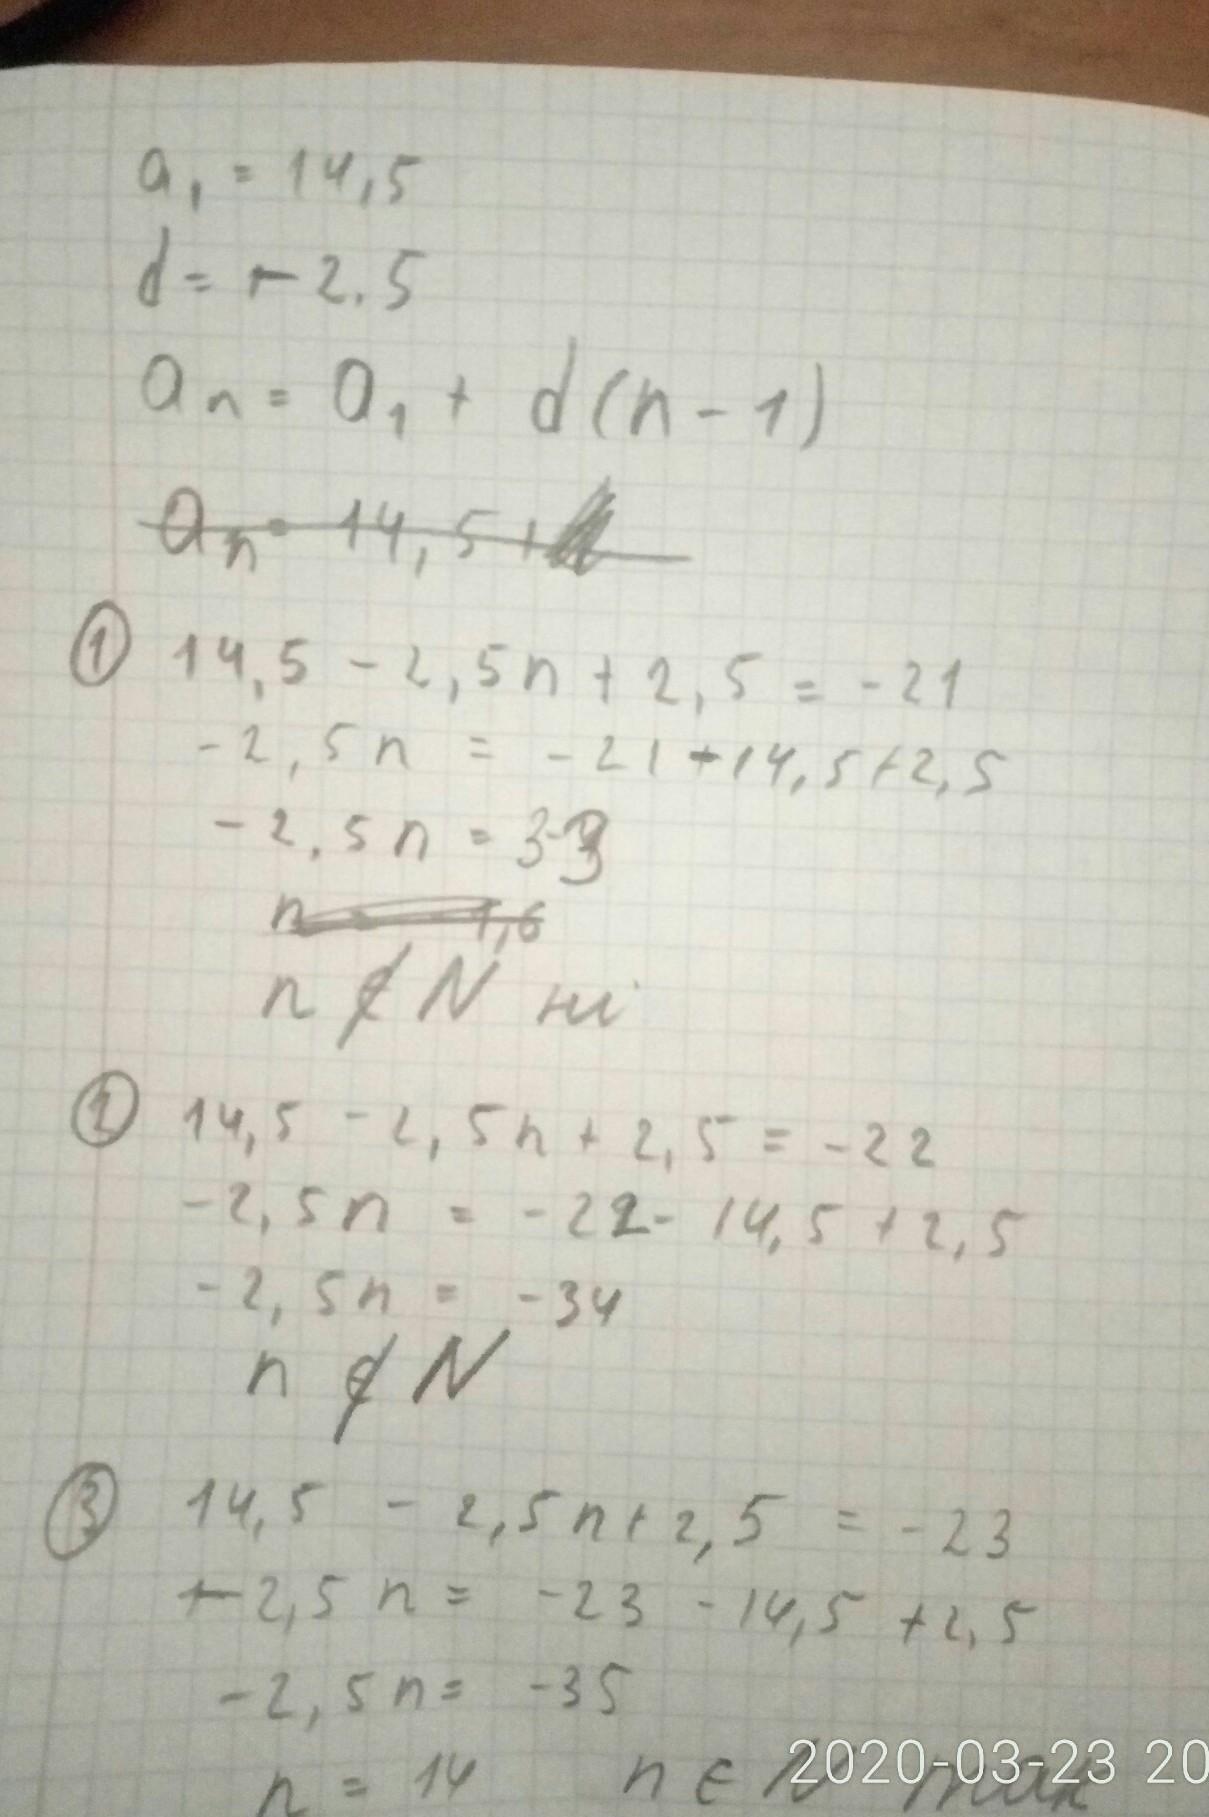 a₁ = 14,5
d = -2.5
aₙ = a₁ + d(n - 1)
aₙ = 14,5 +
① 14,5 - 2,5n + 2,5 = -21
-2,5n = -21 - 14,5 + 2,5
-2,5n = 33
n 1,6
n ∉ N ні
② 14,5 - 2,5n + 2,5 = -22
-2,5n = -22 - 14,5 + 2,5
-2,5n = -34
n ∉ N
③ 14,5 - 2,5n + 2,5 = -23
-2,5n = -23 - 14,5 + 2,5
-2,5n = -35
n = 14 n ∈ N так
2020-03-23 20